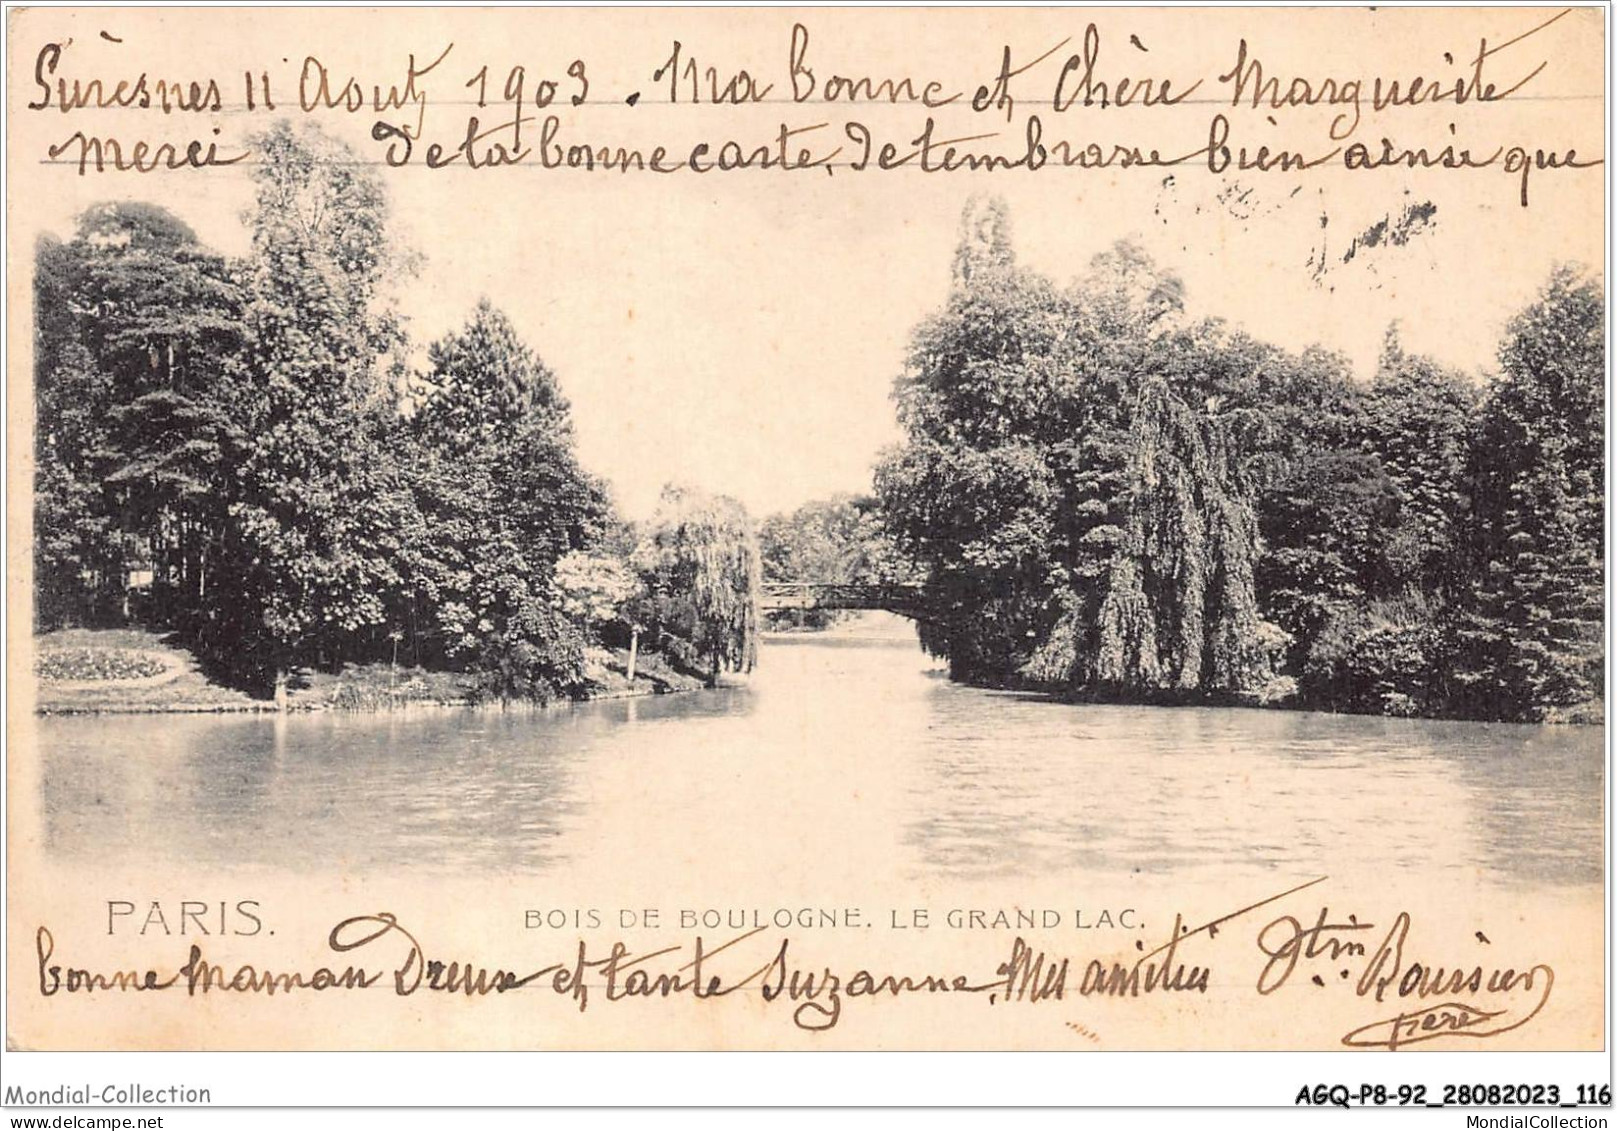 Surèsnes 11 Aout 1903. Ma bonne et Chère Marguerite
Merci de ta bonne carte, Je t'embrasse bien ainsi que
PARIS.
BOIS DE BOULOGNE. LE GRAND LAC.
bonne Maman Dreux et tante Suzanne. Mes amitiés Boursier
père
Mondial-Collection
AGQ-P8-92_28082023_116
delcampe.net
MondialCollection